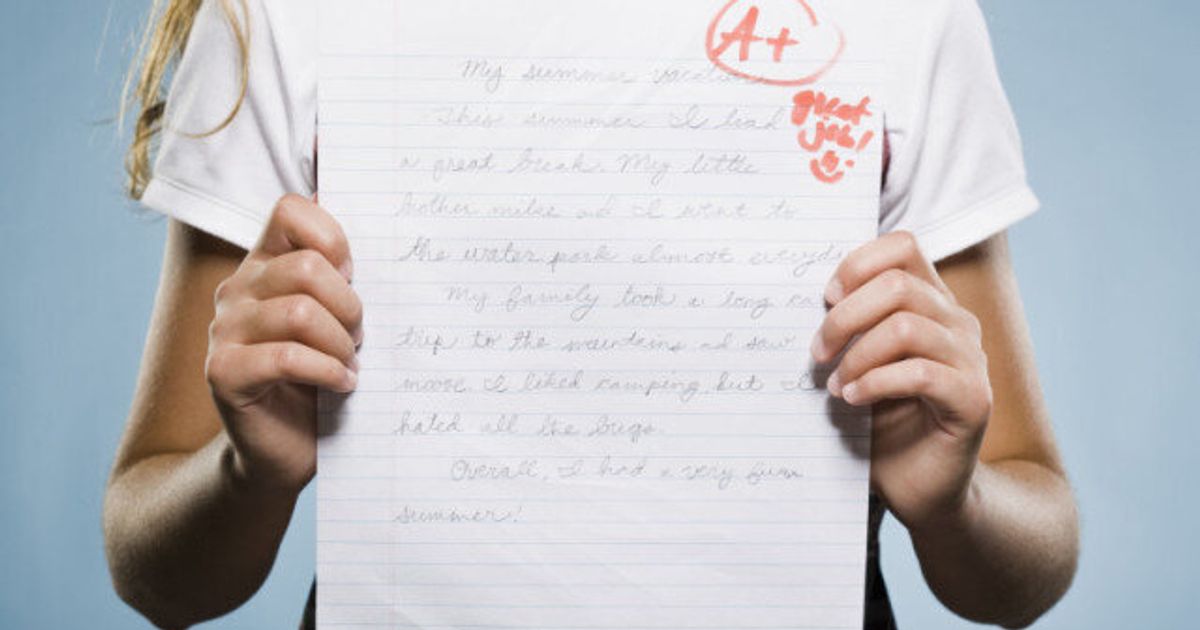 A+
My summer vacation
great
job!
This summer I had
a great break. My little
brother mike and I went to
the water park almost everyda
My family took a long ca
trip to the mountains and saw
moose. I liked camping, but I
hated all the bugs.
Overall, I had a very fun
summer!